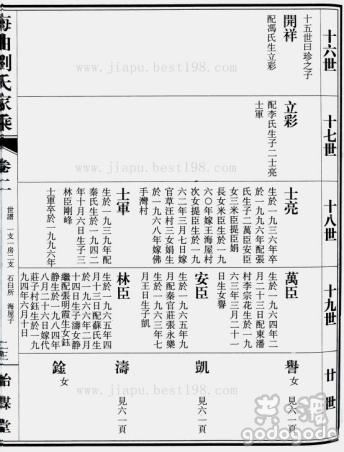 十六世
十七世
十八世
十九世
廿世
十五世日珍之子
開祥
配馮氏生立彩
立彩
配李氏生子二士亮
士軍
士亮
生於一九三六年卒
於一九九六年配張
氏生子二萬臣安臣
女三米臣提臣娟
長女米臣生於一九
六〇年嫁王海屋村
次女提臣生於一九
六二年三月七日嫁
官草汪村三女娟生
於一九六八年嫁佛
手灣村
士軍
生於一九三九年配
秦氏生於一九四二
年十月六日生子三
林臣剛峰
士軍卒於一九九六年
萬臣
生於一九六四年二
月二十三日配東潘
村李宗花生於一九
六三年三月二十一
日生女譽
安臣
生於一九六五年九
月配秦官莊張永樂
生於一九六三年七
月王日生子凱
林臣
生於一九六五年四
月十八日配蘇氏生
於一九六六年二月
十四日生子濤女靜
繼配張明霞生女鈺
靜生於一九八四年
八月二十六日嫁代
莊子村鈺生於一九
九四年六月十日
譽
女
見六一頁
凱
見六一頁
濤
見六一頁
女
海曲劉氏家乘
卷二
世譜
一支一房二支
石臼所
海屋子
怡謀堂
www.jiapu.best198.com
www.jiapu.best198.com
www.jiapu.best198.com
godagoda